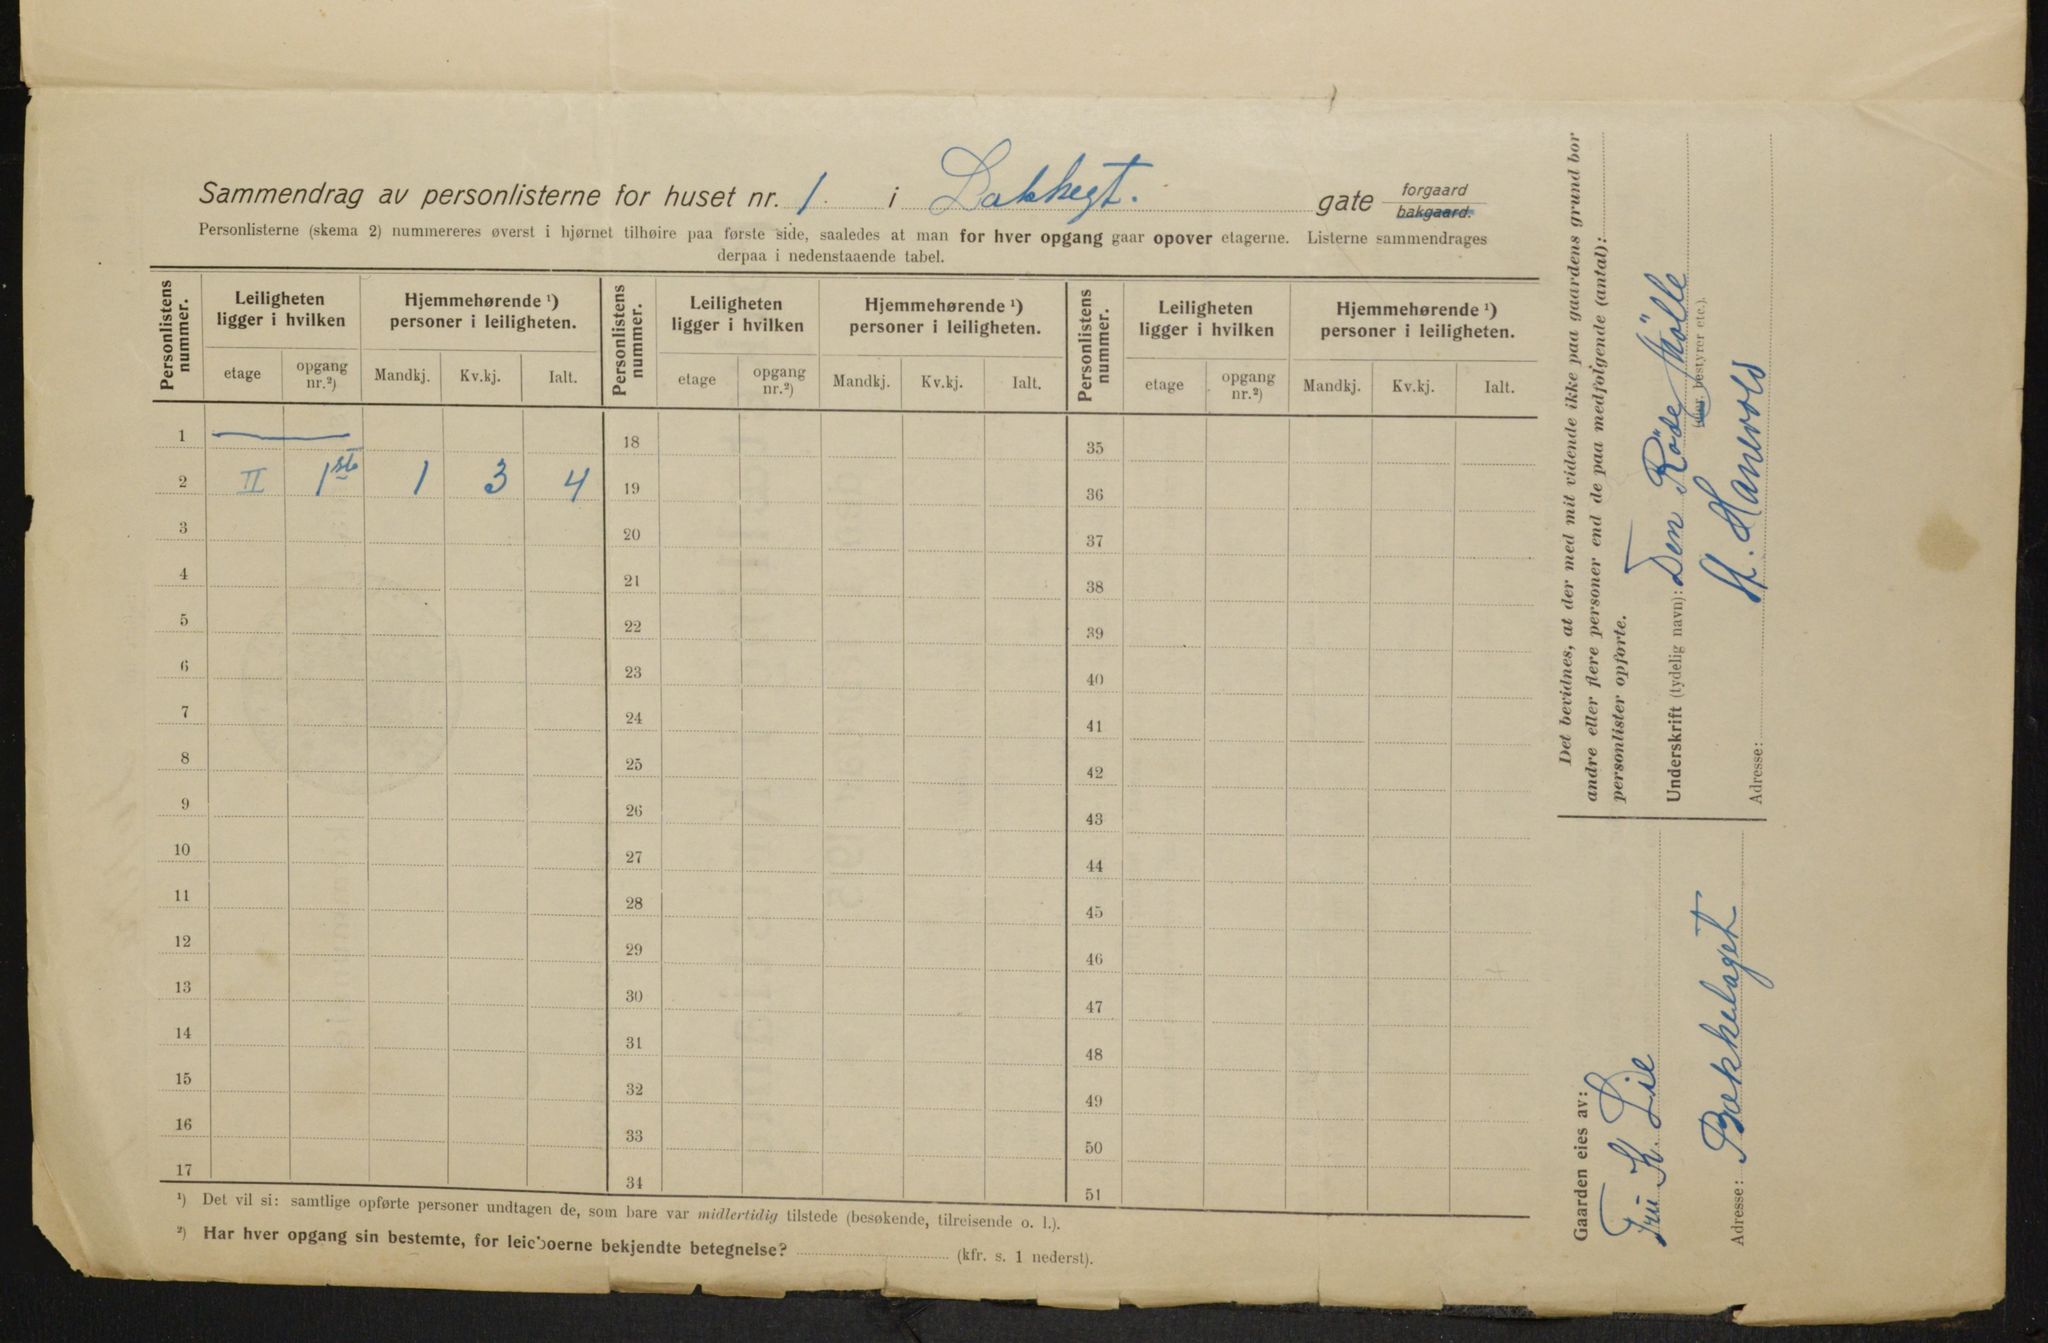 Sammendrag av personlisterne for huset nr. 1 i Lakkegt. gate forgaard
bakgaard.
Personlisterne (skema 2) nummereres øverst i hjørnet tilhøire paa første side, saaledes at man for hver opgang gaar opover etagerne. Listerne sammendrages
derpaa i nedenstaaende tabel.
Personlistens nummer. Leiligheten ligger i hvilken Hjemmehørende ¹) personer i leiligheten. Personlistens nummer. Leiligheten ligger i hvilken Hjemmehørende ¹) personer i leiligheten. Personlistens nummer. Leiligheten ligger i hvilken Hjemmehørende ¹) personer i leiligheten.
etage opgang nr.²) Mandkj. Kv.kj. Ialt. etage opgang nr.²) Mandkj. Kv.kj. Ialt. etage opgang nr.²) Mandkj. Kv.kj. Ialt.
1 — 18 35
2 II 1ste 1 3 4 19 36
3 20 37
4 21 38
5 22 39
6 23 40
7 24 41
8 25 42
9 26 43
10 27 44
11 28 45
12 29 46
13 30 47
14 31 48
15 32 49
16 33 50
17 34 51
¹) Det vil si: samtlige opførte personer undtagen de, som bare var midlertidig tilstede (besøkende, tilreisende o. l.).
²) Har hver opgang sin bestemte, for leieboerne bekjendte betegnelse? (kfr. s. 1 nederst).
Det bevidnes, at der med mit vidende ikke paa gaardens grund bor
andre eller flere personer end de paa medfølgende (antal):
personlister opførte.
Underskrift (tydelig navn): Den Röde Mölle
(eier, bestyrer etc.).
H. Hanevold
Adresse:
Gaarden eies av:
Fru K. Lie
Adresse: Bækkelaget